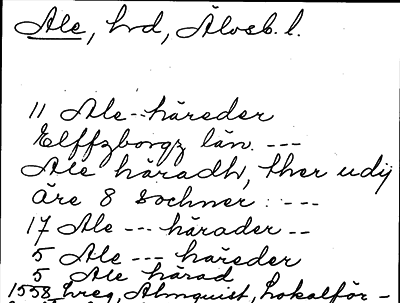 Ale, hrd, Älvsb. l.
11 Ale -- häreder
Elffzborgz län. ---
Ale häradh, ther udij
äre 8 sochner : ---
17 Ale --- härader --
5 Ale --- häreder
5 Ale härad
1558 Lreg, Almquist, Lokalför-